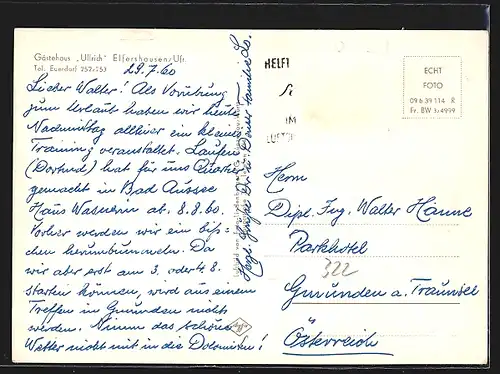 Gästehaus „Ullrich" Elfershausen/Ufr.
Tel. Euerdorf 252+253
29.7.60
Lieber Walter! Als Vorübung
zum Urlaub haben wir heute
Nachmittag allhier ein kleines
Training veranstaltet. Laufen
(Dortmd) hat für uns Quartier
gemacht in Bad Aussee
Haus Wasnerin ab. 8.8.60.
Vorher werden wir ein biß-
chen herumbummeln. Da
wir aber erst am 3. oder 4.8.
starten können, wird aus einem
Treffen in Gmunden nichts
werden. Nimm das schöne
Wetter nicht mit in die Dolomiten!
Grüße Dir u. Deiner Familie
HELFT
IM
ECHT
FOTO
09 6 39 114 R
Fr. BW 3/4999
Herrn
Dipl. Ing. Walter Hanne
Parkhotel
322
Gmunden a. Traunsee
Österreich